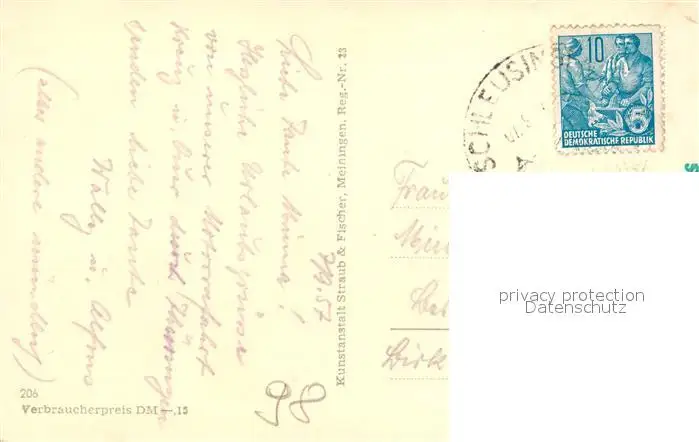 7/9.57
Liebe Tante Minna!
Herzliche Urlaubsgrüsse
von unserer Motorradfahrt
kreuz u. quer durch Thüringen
senden liebe Tante
Wally u. Alfons
(alles andere mündlich)
206
Verbraucherpreis DM -,15
Kunstanstalt Straub & Fischer, Meiningen, Reg.-Nr. 23
98
SCHLEUSING
10
5
DEUTSCHE
DEMOKRATISCHE REPUBLIK
Frau
privacy protection
Datenschutz